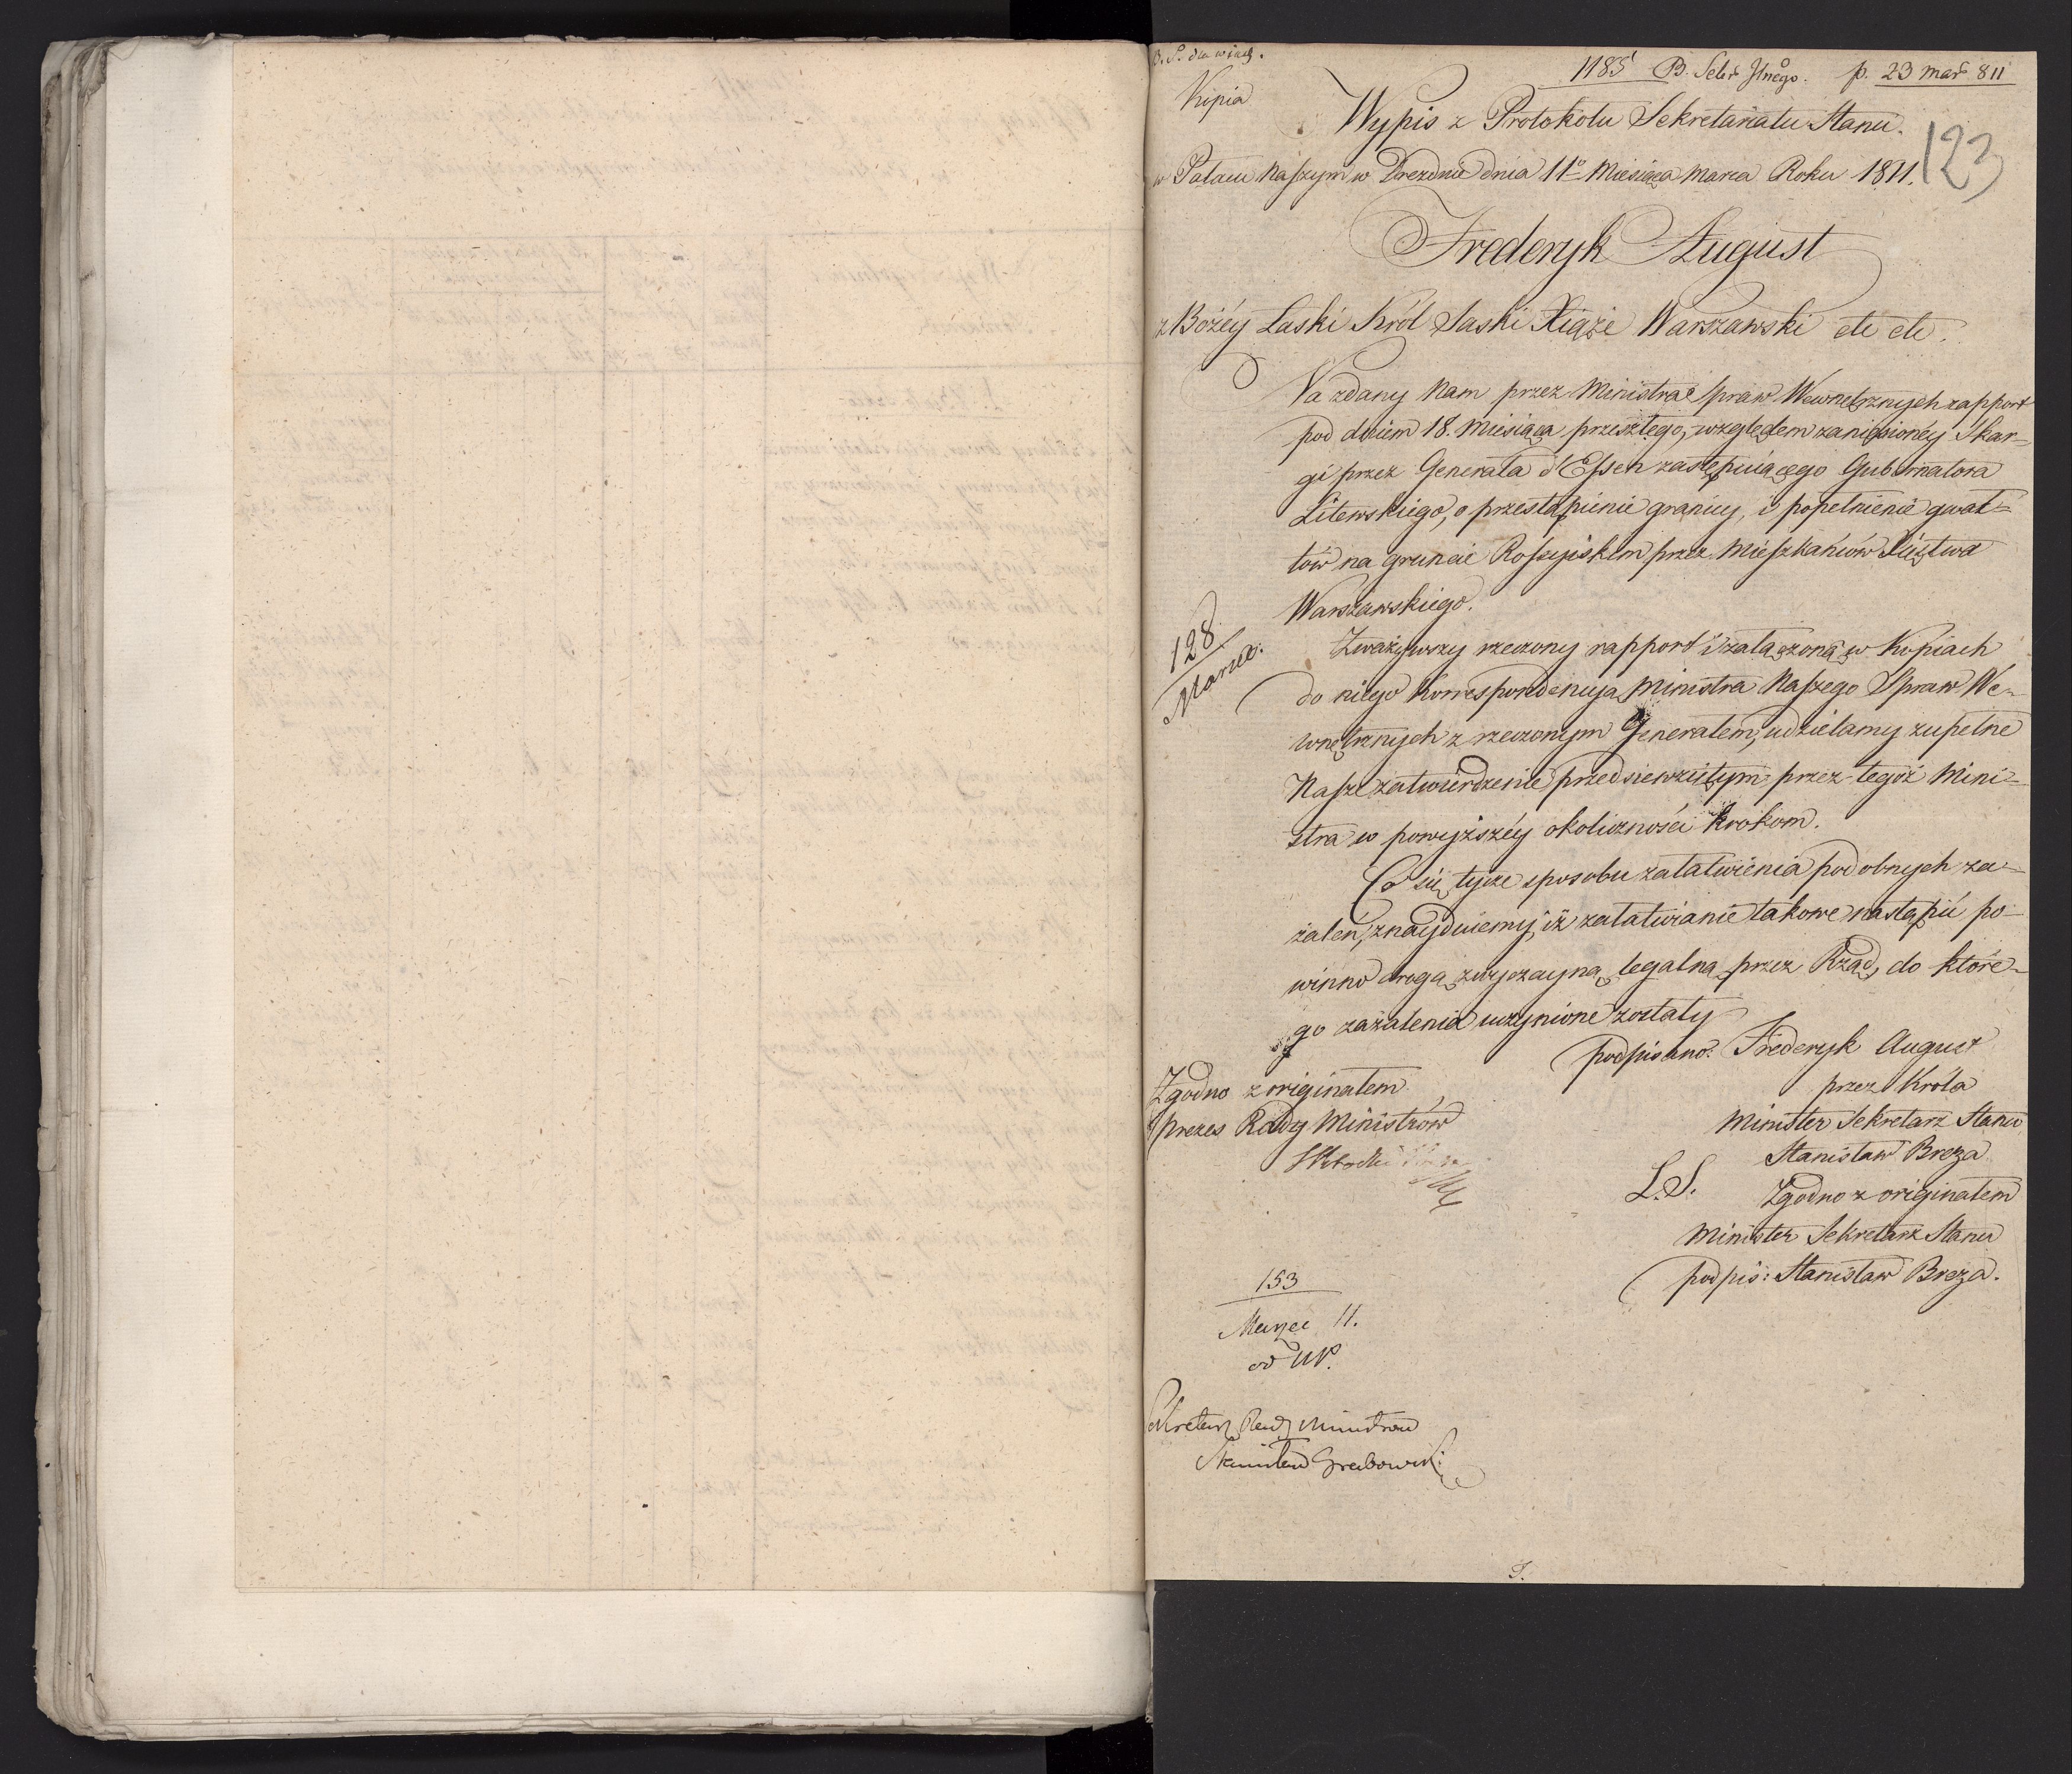 1185 B. Sekr Jlnego. p. 23 mar 811
Kopia
Wypis z Protokołu Sekretariatu Stanu.
123
w Pałacu Naszym w Dreznie dnia 11º Miesiąca Marca Roku 1811.
Frederyk August
z Bożéy Łaski Król Saski Xiąże Warszawski etc etc.
Na zdany Nam przez Ministra Spraw Wewnętrznych rapport
pod dniem 18. Miesiąca przeszłego, względem zaniesionéy Skar-
gi przez Generała d'Essen zastępuiącego Gubernatora
Litewskiego, o przestąpienie granicy, i popełnienie gwał-
tów na gruncie Rossyiskim przez Mieszkańców Xięztwa
Warszawskiego.
128
Marca.
Zważywszy rzeczony rapport i załączoną w Kopiach
do niego Korrespondencyą Ministra Naszego Spraw We-
wnętrznych z rzeczonym Generałem, udzielamy zupełne
Nasze zatwierdzenie przedsiewziętym przez tegoż Mini-
stra w powyższéy okoliczności krokom.
Co się tycze sposobu załatwienia podobnych za-
żaleń, znayduiemy, iż załatwianie takowe nastąpić po-
winno drogą zwyczayną legalną przez Rząd, do które-
go zażalenia uczynione zostały
podpisano: Frederyk August
przez Króla
Minister Sekretarz Stanu
Stanisław Breza
L.S. Zgodno z originałem
Minister Sekretarz Stanu
podpis: Stanisław Breza.
Zgodno z originałem
Prezes Rady Ministrów
153
Marzec 11.
od
Sekretarz Rady Ministrow
Stanisław Grabowski